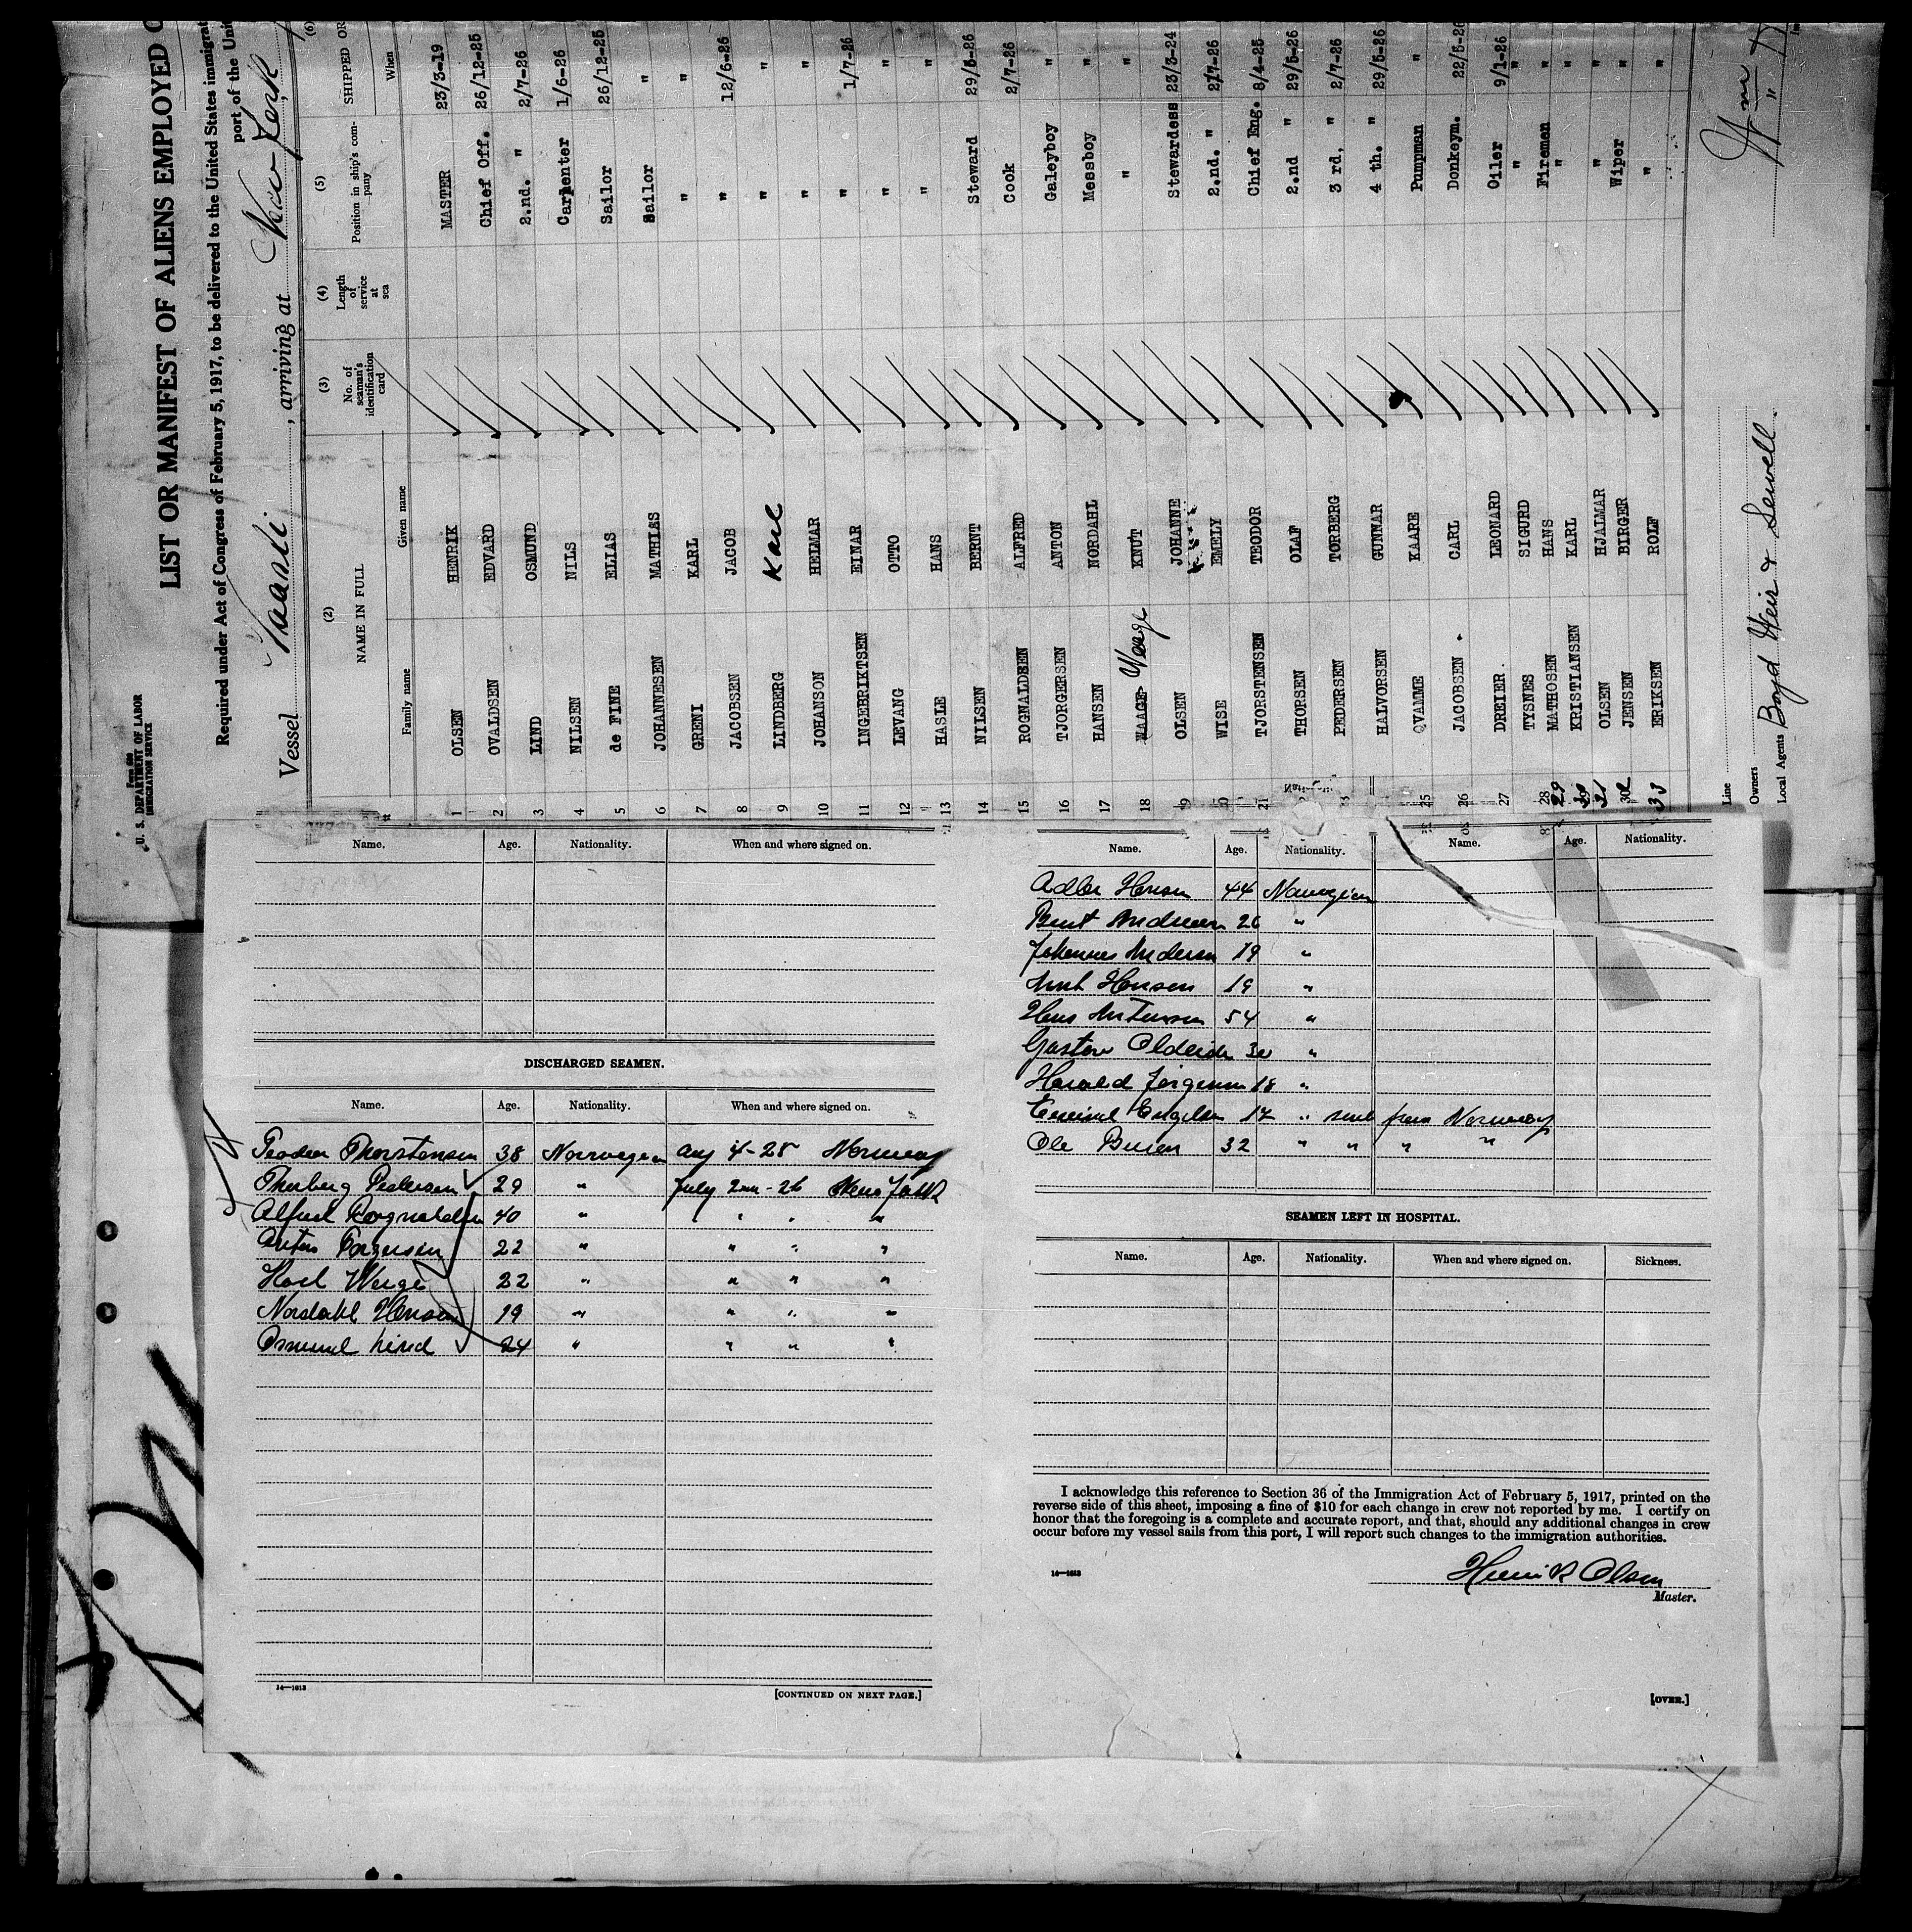 Form 680
U. S. DEPARTMENT OF LABOR
IMMIGRATION SERVICE
LIST OR MANIFEST OF ALIENS EMPLOYED O
Required under Act of Congress of February 5, 1917, to be delivered to the United States immigrat
port of the Unit
Vessel , arriving at New York
(2) (3) (4) (5) (6)
NAME IN FULL No. of seaman's identification card Length of service at sea Position in ship's company SHIPPED OR
Family name Given name When
1 OLSEN HENRIK MASTER 23/3-19
2 OVALDSEN EDVARD Chief Off. 26/12-25
3 LIND OSMUND 2.nd. " 2/7-26
4 NILSEN NILS Carpenter 1/6-26
5 de FINE ELIAS Sailor 26/12-25
6 JOHANNESEN MATHIAS Sailor "
7 GRENI KARL " "
8 JACOBSEN JACOB " 12/6-26
9 LINDBERG Karl " "
10 JOHANSON HELMAR " "
11 INGEBRIKTSEN EINAR " 1/7-26
12 LEVANG OTTO " "
13 HASLE HANS " "
14 NILSEN BERNT Steward 29/5-26
15 ROGNALDSEN ALFRED Cook 2/7-26
16 TJORGERSEN ANTON Galeyboy "
17 HANSEN NORDAHL Messboy "
18 WAAGE Weage KNUT " "
19 OLSEN JOHANNE Stewardess 23/3-24
20 WISE EMELY 2.nd. " 2/7-26
21 TJORSTENSEN TEODOR Chief Eng. 8/4-25
THORSEN OLAF 2.nd " 29/5-26
PEDERSEN TORBERG 3 rd. " 2/7-26
HALVORSEN GUNNAR 4 th. " 29/5-26
25 QVAMME KAARE Pumpman "
26 JACOBSEN CARL Donkeym. 22/5-26
27 DREIER LEONARD Oiler 9/1-26
28 TYSNES SIGURD " "
29 MATHOSEN HANS Firemen "
30 KRISTIANSEN KARL " "
31 OLSEN HJALMAR " "
32 JENSEN BIRGER Wiper "
33 ERIKSEN ROLF " "
Line
Owners
Local Agents Boyd Weir & Sewell
Name. Age. Nationality. When and where signed on.
DISCHARGED SEAMEN.
Name. Age. Nationality. When and where signed on.
Teodor Thorstensen 38 Norwegian Aug 4-25 Norway
Thorberg Pedersen 29 " July 2nd-26 New York
Alfred Rognaldsen 40 " " " "
22 " " " "
Weige 22 " " " "
Nordahl Hansen 19 " " " "
Osmund Lind 24 " " " "
14—1613
[CONTINUED ON NEXT PAGE.]
Name. Age. Nationality. Name. Age. Nationality.
Adler Hansen 44 Norwegian
Andersen 26 "
Johannes Andersen 19 "
Hansen 19 "
Hans 54 "
Gustav "
Harald Jørgensen 18 "
17 " sent from Norway
Ole 32 " " " "
SEAMEN LEFT IN HOSPITAL.
Name. Age. Nationality. When and where signed on. Sickness.
I acknowledge this reference to Section 36 of the Immigration Act of February 5, 1917, printed on the
reverse side of this sheet, imposing a fine of $10 for each change in crew not reported by me. I certify on
honor that the foregoing is a complete and accurate report, and that, should any additional changes in crew
occur before my vessel sails from this port, I will report such changes to the immigration authorities.
14—1613
Henrik Olsen
Master.
[OVER.]